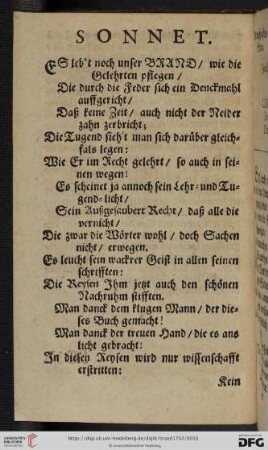 SONNET.
ES leb't noch unser BRAND / wie die
Gelehrten pflegen /
Die durch die Feder sich ein Denckmahl
auffgericht /
Daß keine Zeit / auch nicht der Neider
zahn zerbricht;
Die Tugend sieh't man sich darüber gleich-
fals legen:
Wie Er im Recht gelehrt / so auch in sei-
nen wegen!
Es scheinet ja annoch sein Lehr- und Tu-
gend-licht /
Sein Außgesaubert Recht / daß alle die
vernicht /
Die zwar die Wörter wohl / doch Sachen
nicht / erwegen.
Es leucht sein wackrer Geist in allen seinen
schrifften:
Die Reysen Ihm jetzt auch den schönen
Nachruhm stifften.
Man danck dem klugen Mann / der die-
ses Buch gemacht!
Man danck der treuen Hand / die es ans
licht gebracht!
In diesen Reysen wird nur wissenschafft
erstritten:
Kein